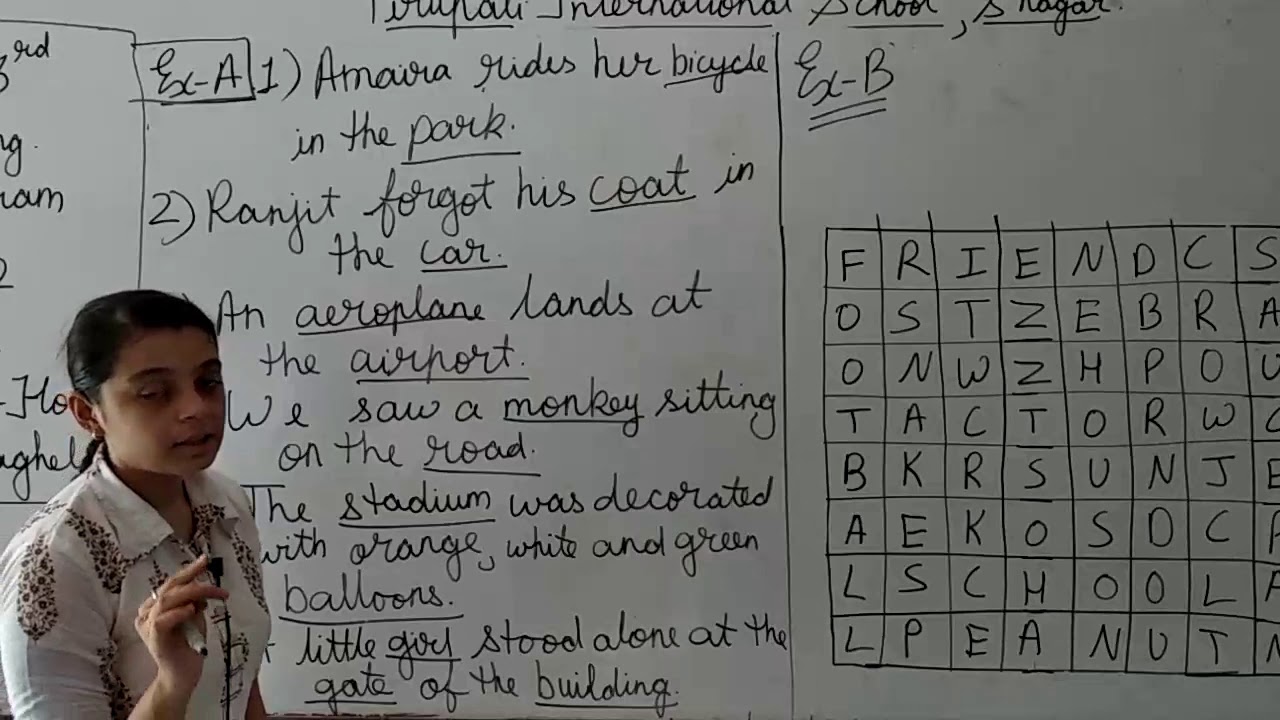 Tirupati International School, S nagar.
3rd
ng.
ram
Ex-A 1) Amaira rides her bicycle
in the park.
2) Ranjit forgot his coat in
the car.
An aeroplane lands at
the airport.
We saw a monkey sitting
on the road.
The stadium was decorated
with orange, white and green
balloons.
little girl stood alone at the
gate of the building.
Ex-B
F R I E N D C S
O S T Z E B R A
O N W Z H P O U
T A C T O R W C
B K R S U N J E
A E K O S D C P
L S C H O O L A
L P E A N U T N